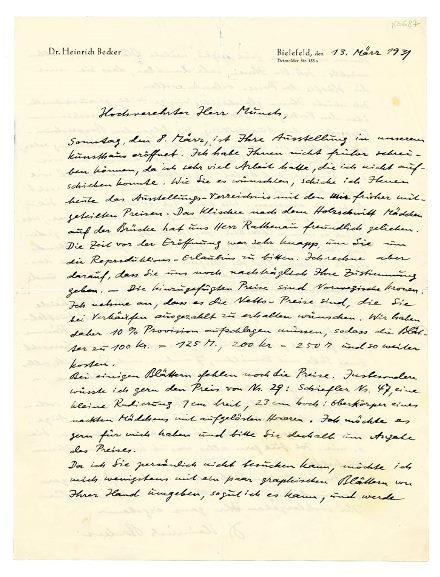 K3687
Dr. Heinrich Becker
Bielefeld, den 13. März 1931
Detmolder Str. 155a
Hochverehrter Herr Munch,
Sonntag, den 8. März, ist Ihre Ausstellung in unserem
Kunsthaus eröffnet. Ich habe Ihnen nicht früher schrei-
ben können, da ich sehr viel Arbeit hatte, die ich nicht auf-
schieben konnte. Wie Sie es wünschten, schicke ich Ihnen
heute das Ausstellungs-Verzeichnis mit den früher mit-
geteilten Preisen. Das Klischee nach dem Holzschnitt Mädchen
auf der Brücke hat uns Herr Rathenau freundlich geliehen.
Die Zeit vor der Eröffnung war sehr knapp, um Sie um
die Reproduktions-Erlaubnis zu bitten. Ich rechne aber
darauf, dass Sie uns noch nachträglich Ihre Zustimmung
geben. – Die hinzugefügten Preise sind Norwegische Kronen.
Ich nehme an, dass es die Netto-Preise sind, die Sie
bei Verkäufen ausgezahlt zu erhalten wünschen. Wir haben
daher 10 % Provision aufschlagen müssen, sodass die Blät-
ter zu 100 Kr. = 125 M, 200 Kr = 250 M und so weiter
kosten.
Bei einigen Blättern fehlen noch die Preise. Insbesondere
wüsste ich gern den Preis von Nr. 29: Schiefler No. 47, eine
kleine Radierung 7 cm breit, 23 cm hoch: Oberkörper eines
nackten Mädchens mit aufgelösten Haaren. Ich möchte es
gern für mich haben und bitte Sie deshalb um Angabe
des Preises.
Da ich Sie persönlich nicht besuchen kann, möchte ich
mich wenigstens mit ein paar graphischen Blättern von
Ihrer Hand umgeben, so gut ich es kann, und werde